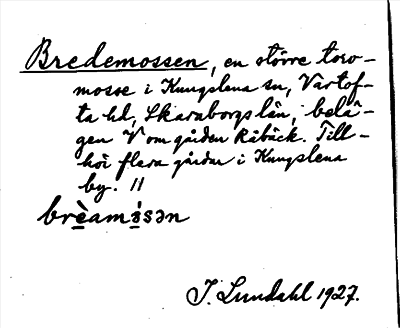 Bredemossen, en större torv-
mosse i Kungslena sn, Vartof-
ta hd, Skaraborgs län, belä-
gen V om gården Råbäck. Till-
hör flera gårdar i Kungslena
by. ||
brèamåsən
J. Lundahl 1927.